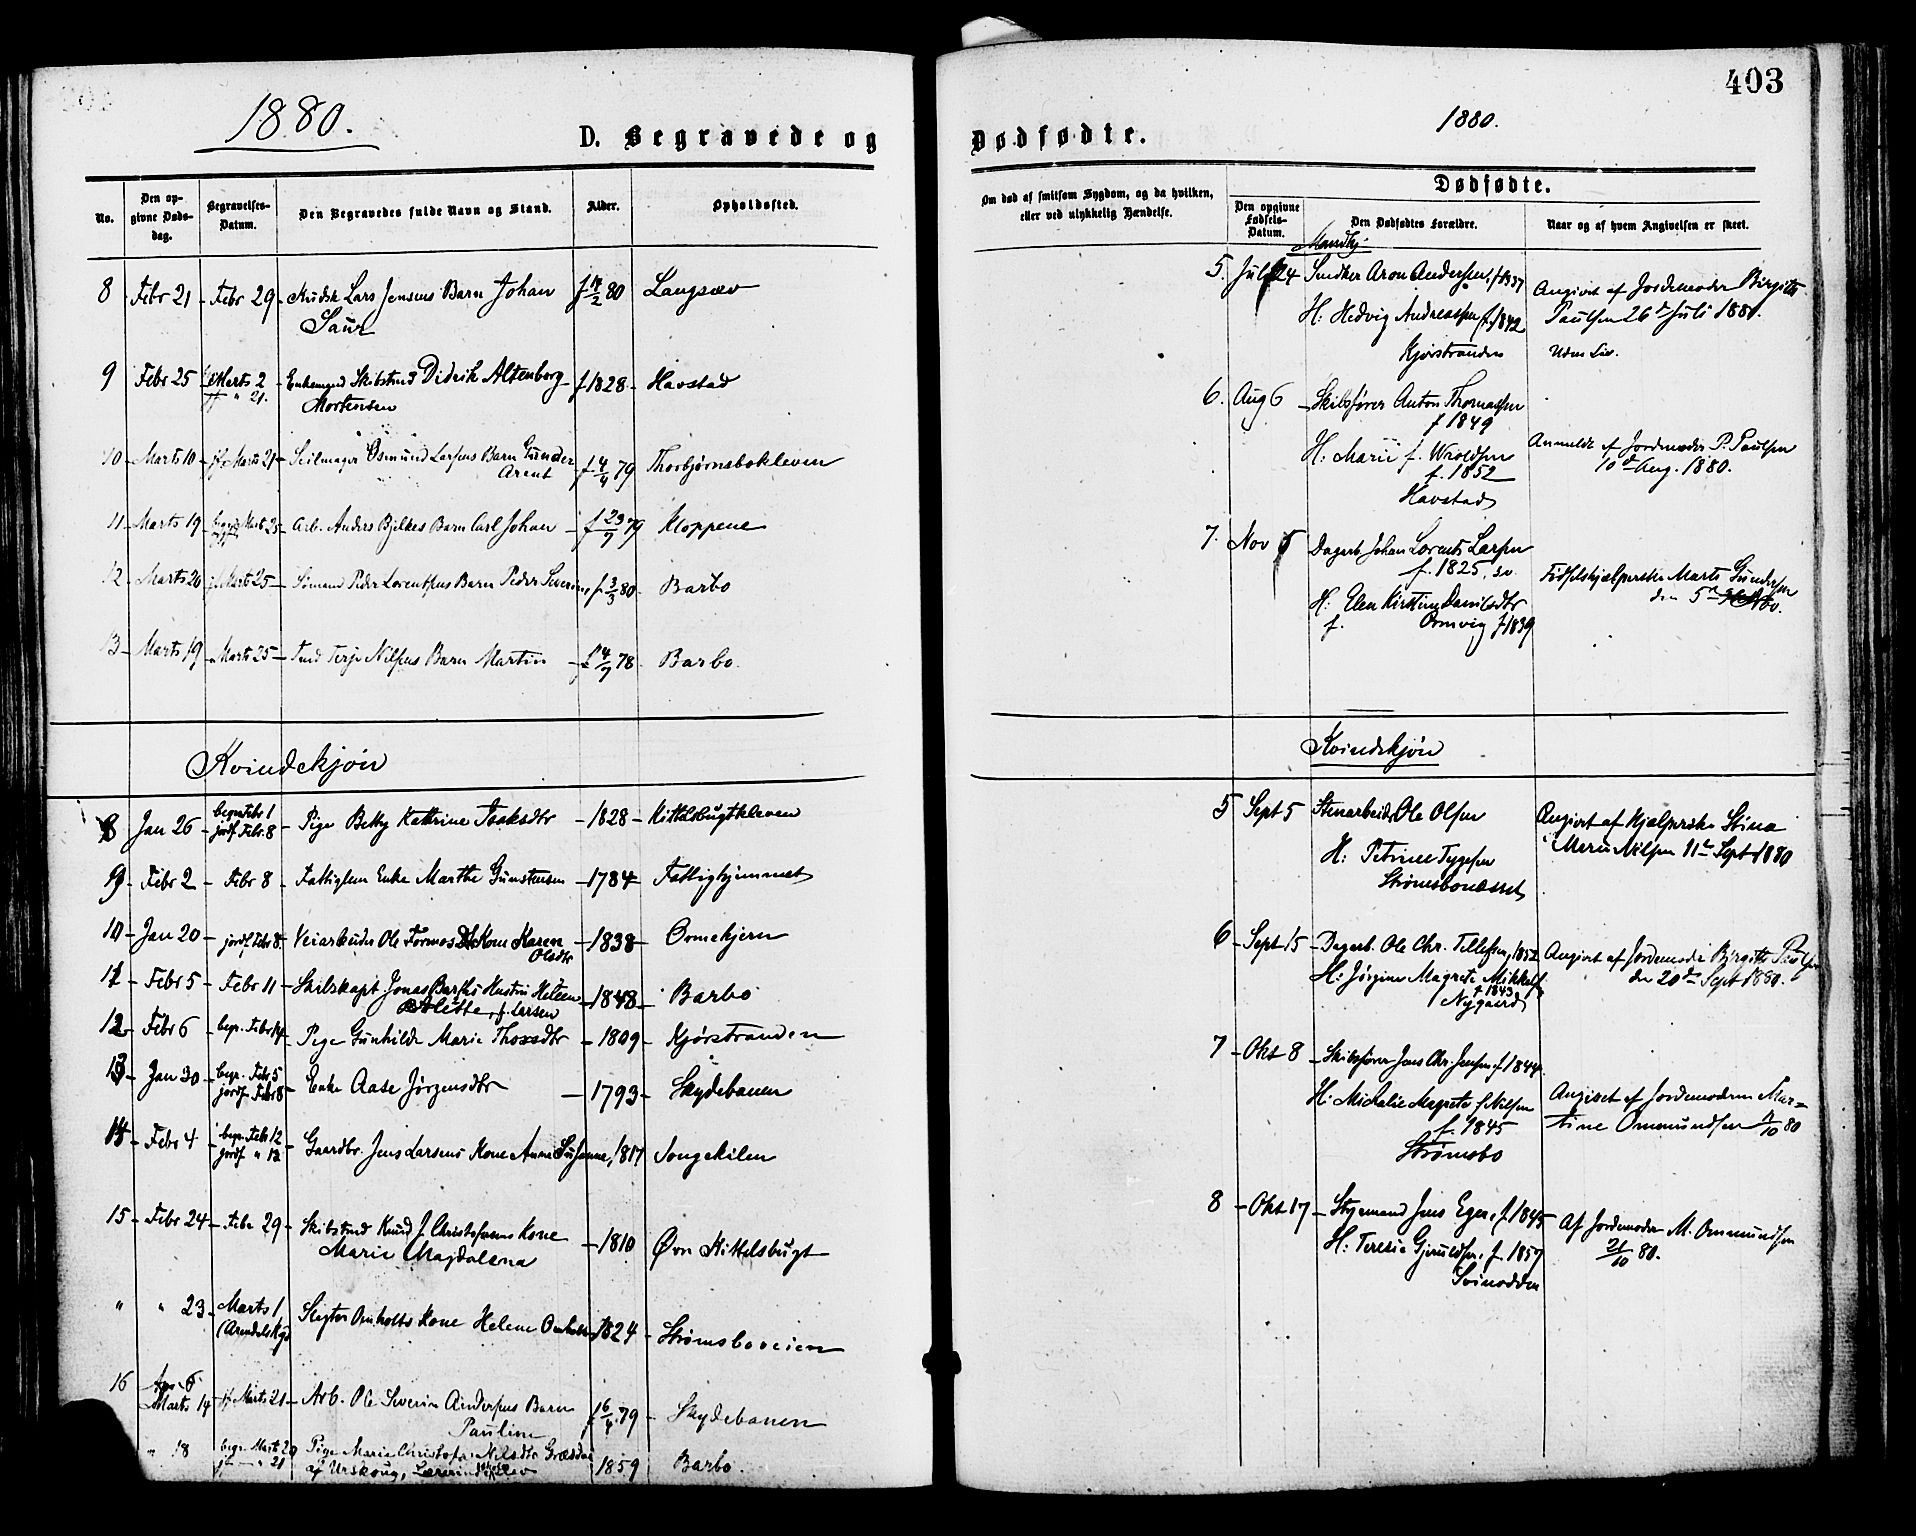 1880.
D. Begravede og
No.
Den opgivne Døds-
dag.
Begravelses-
Datum.
Den Begravedes fulde Navn og Stand.
Alder.
Opholdssted.
8 Febr 21 Febr 29 Lars Jensens Barn Johan f 80 Langsæv
9 Febr 25 Marts 2 Enkemand Skibstmd Didrik Altenborg f 1828 Havstad
" 21. Mortensen
10 Marts 10 jf Marts 21 Seilmager Osmund Larsens Barn Gunder f 4/4 79 Thorbjørnsbokleven
Arent
11 Marts 19 Marts 25 Arb. Anders Bjelkes Barn Carl Johan f 23/7 79 Kloppene
12 Marts 20 Marts 25 Sømand Peder Lorentsens Barn Peder Severin f 3/3 80 Barbo
13 Marts 19 Marts 25 Terje Nilsens Barn Martin f 4/7 78 Barbo.
Kvindekjøn
8 Jan 26 begr. Febr 1 Pige Betty Kathrine Isaksdtr 1828 Kittelsbugtkleven
jordf. Febr. 8
9 Febr 2 Febr 8 Fattiglem Enke Marthe Gunstensen 1784 Fattighjemmet
10 Jan 20 jordf. Febr 8 Veiarbeider Ole Tormods Kone Karen 1838 Ormekjern
Olsdtr
11 Febr 5 Febr 11 Skibskapt Jonas Hustru Heleen 1848 Barbo
f. Larsen
12 Febr 6 begr. Febr 14 Pige Gunhilde Marie Thorsdtr 1809 Kjørstranden
13 Jan 30 begr. Febr 5 Enke Aase Jørgensdtr 1793 Skydebanen
jordf Febr 8
14 Febr 4 begr. Febr 12 Gaardbr. Jens Larsens Kone Anne Susanne, 1817 Songekilen
jordf " 12
15 Febr 24 Febr 29 Skibstmd Knud J. Christofersens Kone 1810 Øvre Kittelsbugt
Marie Magdalena
" " 23 Marts 1 Omholts Kone Helene Omholt 1824 Strømsboveien
(Arendals Kgd
16 Marts 14 jf Marts 21 Arb. Ole Severin Andersens Barn f 16/4 79 Skydebanen
Pauline
" 18 begr Marts 20 Pige Marie Christofa Nilsdtr 1859 Barbo.
" 21 af Urskoug,
403
1880.
Dødfødte.
Om død af smitsom Sygdom, og da hvilken,
eller ved ulykkelig Hændelse.
Dødfødte.
Den opgivne
Fødsels-
Datum.
Den Dødfødtes Forældre.
Naar og af hvem Angivelsen er skeet.
Mandkj.
5. Juli 24 Snedker Aron Andersen, f 1837 Angivet af Jordemoder Birgitte
H: Hedvig Andreassen f. 1842 Paulsen 26de Juli 1880.
Kjørstranden Uden Liv.
6. Aug 6 Skibsfører Anton Thomassen
f 1849
H: Marie f. Wroldsen Anmeldt af Jordemoder P. Paulsen
f. 1852 10de Aug. 1880.
Havstad
7. Nov 5 Dagarb Johan Lorents Larsen
f. 1825 Fødselshjælperske Marte Gundersen
H: Elen Kirstine Danilsdtr den 5te Nov.
f. Ormvig f 1839
Kvindekjøn
5 Sept 5 Stenarbeider Ole Olsen Angivet af Hjælperske Stina
H: Petrine Tygesen Maria Nilsen 11te Sept 1880
Strømsbonæsset
6 Sept 15 Dagarb. Ole Chr. Tellefsen, 1852 Angivet af Jordemoder Birgitte Paulsen
H: Jørgine Magrete Mikkels den 20de Sept 1880.
f 1843
Nygaard
7 Okt 8 Skibsfører Jens Chr. Jensen f 1844.
H: Michalie Magrete f Nilsen Angivet af Jordemoderen Mar=
f. 1845 tine Ommundsen 11/10 80
Strømsbo
8 Okt 17 Styrmand Jens Eger, f. 1845 Af Jordemoder M. Ommundsen
H: Teresie Gjeruldsen, f. 1857 21/10 80.
Svinodden